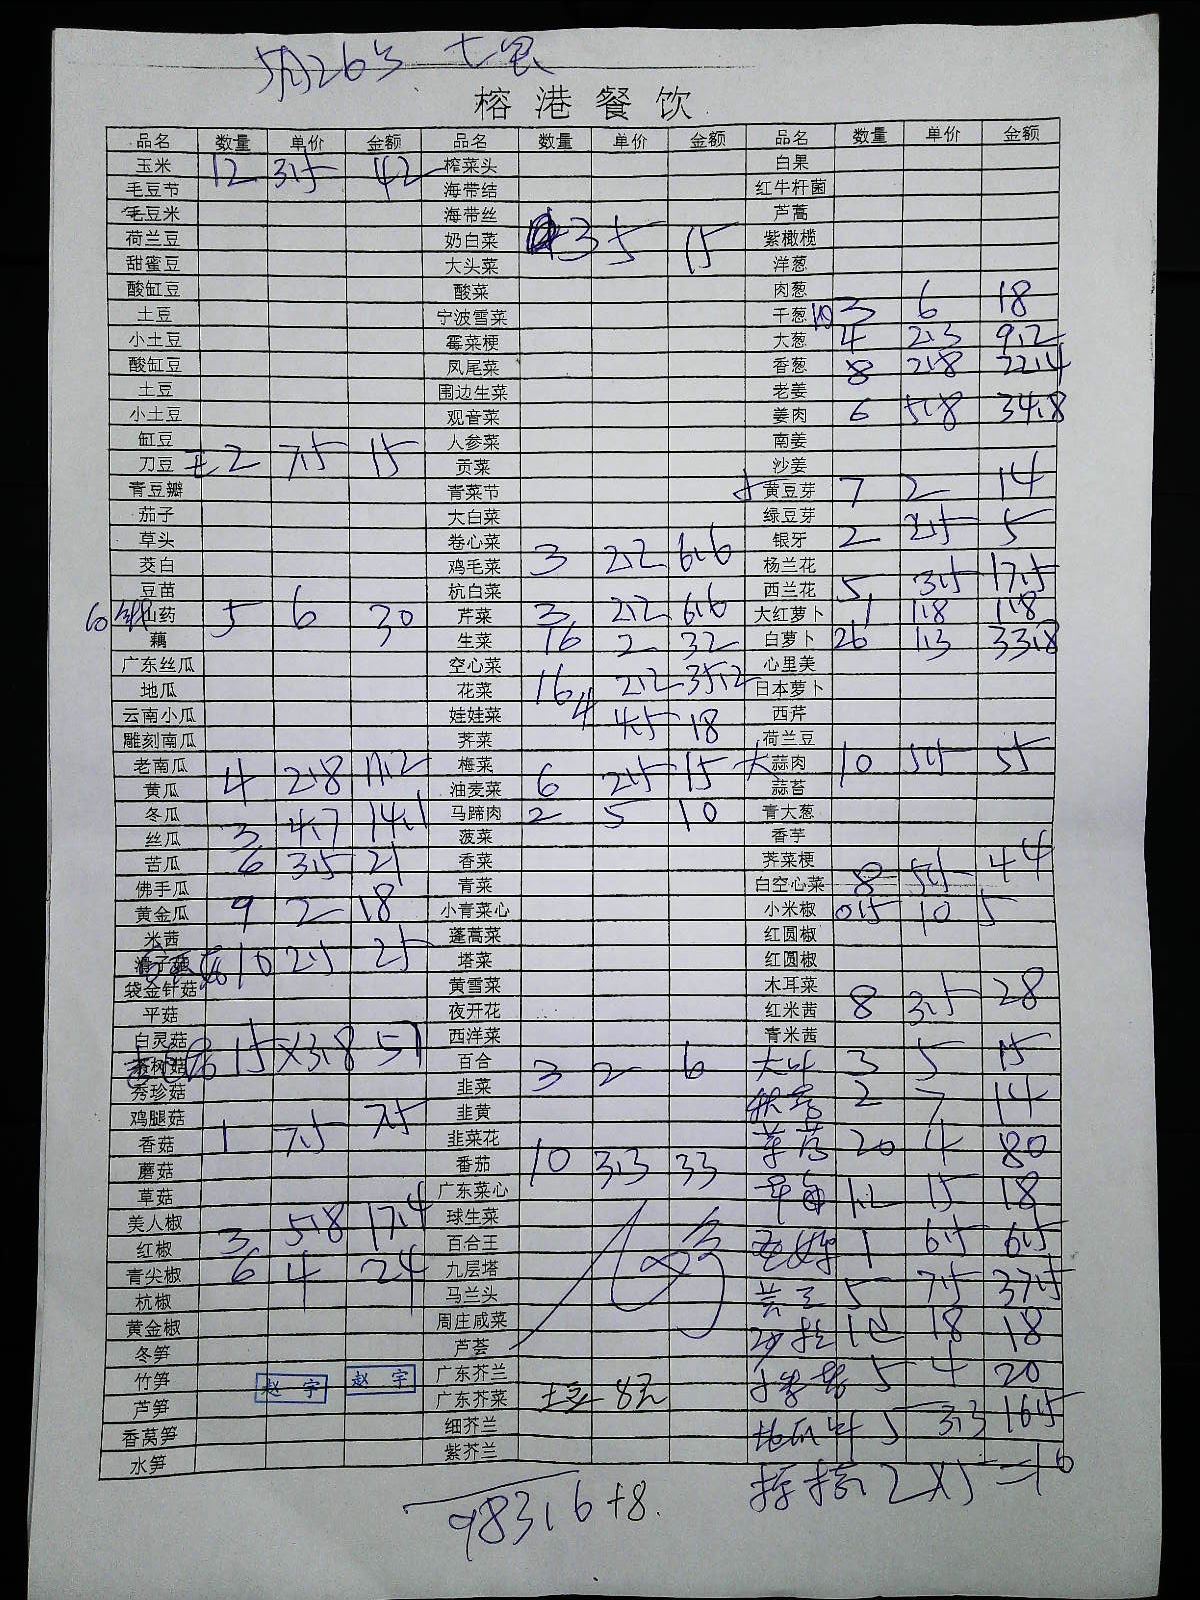 5月26号
榕港餐饮
品名 数量 单价 金额 品名 数量 单价 金额 品名 数量 单价 金额
玉米 12 3.5 42 榨菜头 白果
毛豆节 海带结 红牛杆菌
毛豆米 海带丝 芦蒿
荷兰豆 奶白菜 3 5 15 紫橄榄
甜蜜豆 大头菜 洋葱
酸缸豆 酸菜 肉葱
土豆 宁波雪菜 干葱 3 6 18
小土豆 霉菜梗 大葱 4 2.3 9.2
酸缸豆 凤尾菜 香葱 8 2.8 22.4
土豆 围边生菜 老姜
小土豆 观音菜 姜肉 6 5.8 34.8
缸豆 人参菜 南姜
刀豆 2 7.5 15 贡菜 沙姜
青豆瓣 青菜节 黄豆芽 7 2 14
茄子 大白菜 绿豆芽
草头 卷心菜 银牙 2 2.5 5
茭白 鸡毛菜 3 2.2 6.6 杨兰花
豆苗 杭白菜 西兰花 5 3.5 17.5
山药 5 6 30 芹菜 3 2.2 6.6 大红萝卜 1 1.8 1.8
藕 生菜 16 2 32 白萝卜 26 1.3 33.8
广东丝瓜 空心菜 心里美
地瓜 花菜 16 2.2 35.2 日本萝卜
云南小瓜 娃娃菜 4 4.5 18 西芹
雕刻南瓜 荠菜 荷兰豆
老南瓜 梅菜 大蒜肉 10 5.5 55
黄瓜 4 2.8 11.2 油麦菜 6 2.5 15 蒜苔
冬瓜 马蹄肉 2 5 10 青大葱
丝瓜 3 4.7 14.1 菠菜 香芋
苦瓜 6 3.5 21 香菜 荠菜梗
佛手瓜 青菜 白空心菜 8 5.5 44
黄金瓜 9 2 18 小青菜心 小米椒 0.5 10 5
米茜 蓬蒿菜 红圆椒
10 2.5 25 塔菜 红圆椒
袋金针菇 黄雪菜 木耳菜
平菇 夜开花 红米茜 8 3.5 28
白灵菇 西洋菜 青米茜
茶树菇 15 X3.8 57 百合 3 2 6 大叶 3 5 15
秀珍菇 韭菜 2 7 14
鸡腿菇 韭黄
香菇 1 7.5 7.5 韭菜花 20 4 80
蘑菇 番茄 10 3.3 33
草菇 广东菜心 1.2 15 18
美人椒 球生菜
红椒 3 5.8 17.4 百合王 1 6.5 6.5
青尖椒 6 4 24 九层塔
杭椒 马兰头 5 7.5 37.5
黄金椒 周庄咸菜 18 18
冬笋 芦荟
竹笋 赵宇 赵宇 广东芥兰 5 4 20
芦笋 广东芥菜 土豆 8元
香莴笋 细芥兰 地瓜叶 5 3.3 16.5
水笋 紫芥兰
2X5=10
983.6+8.